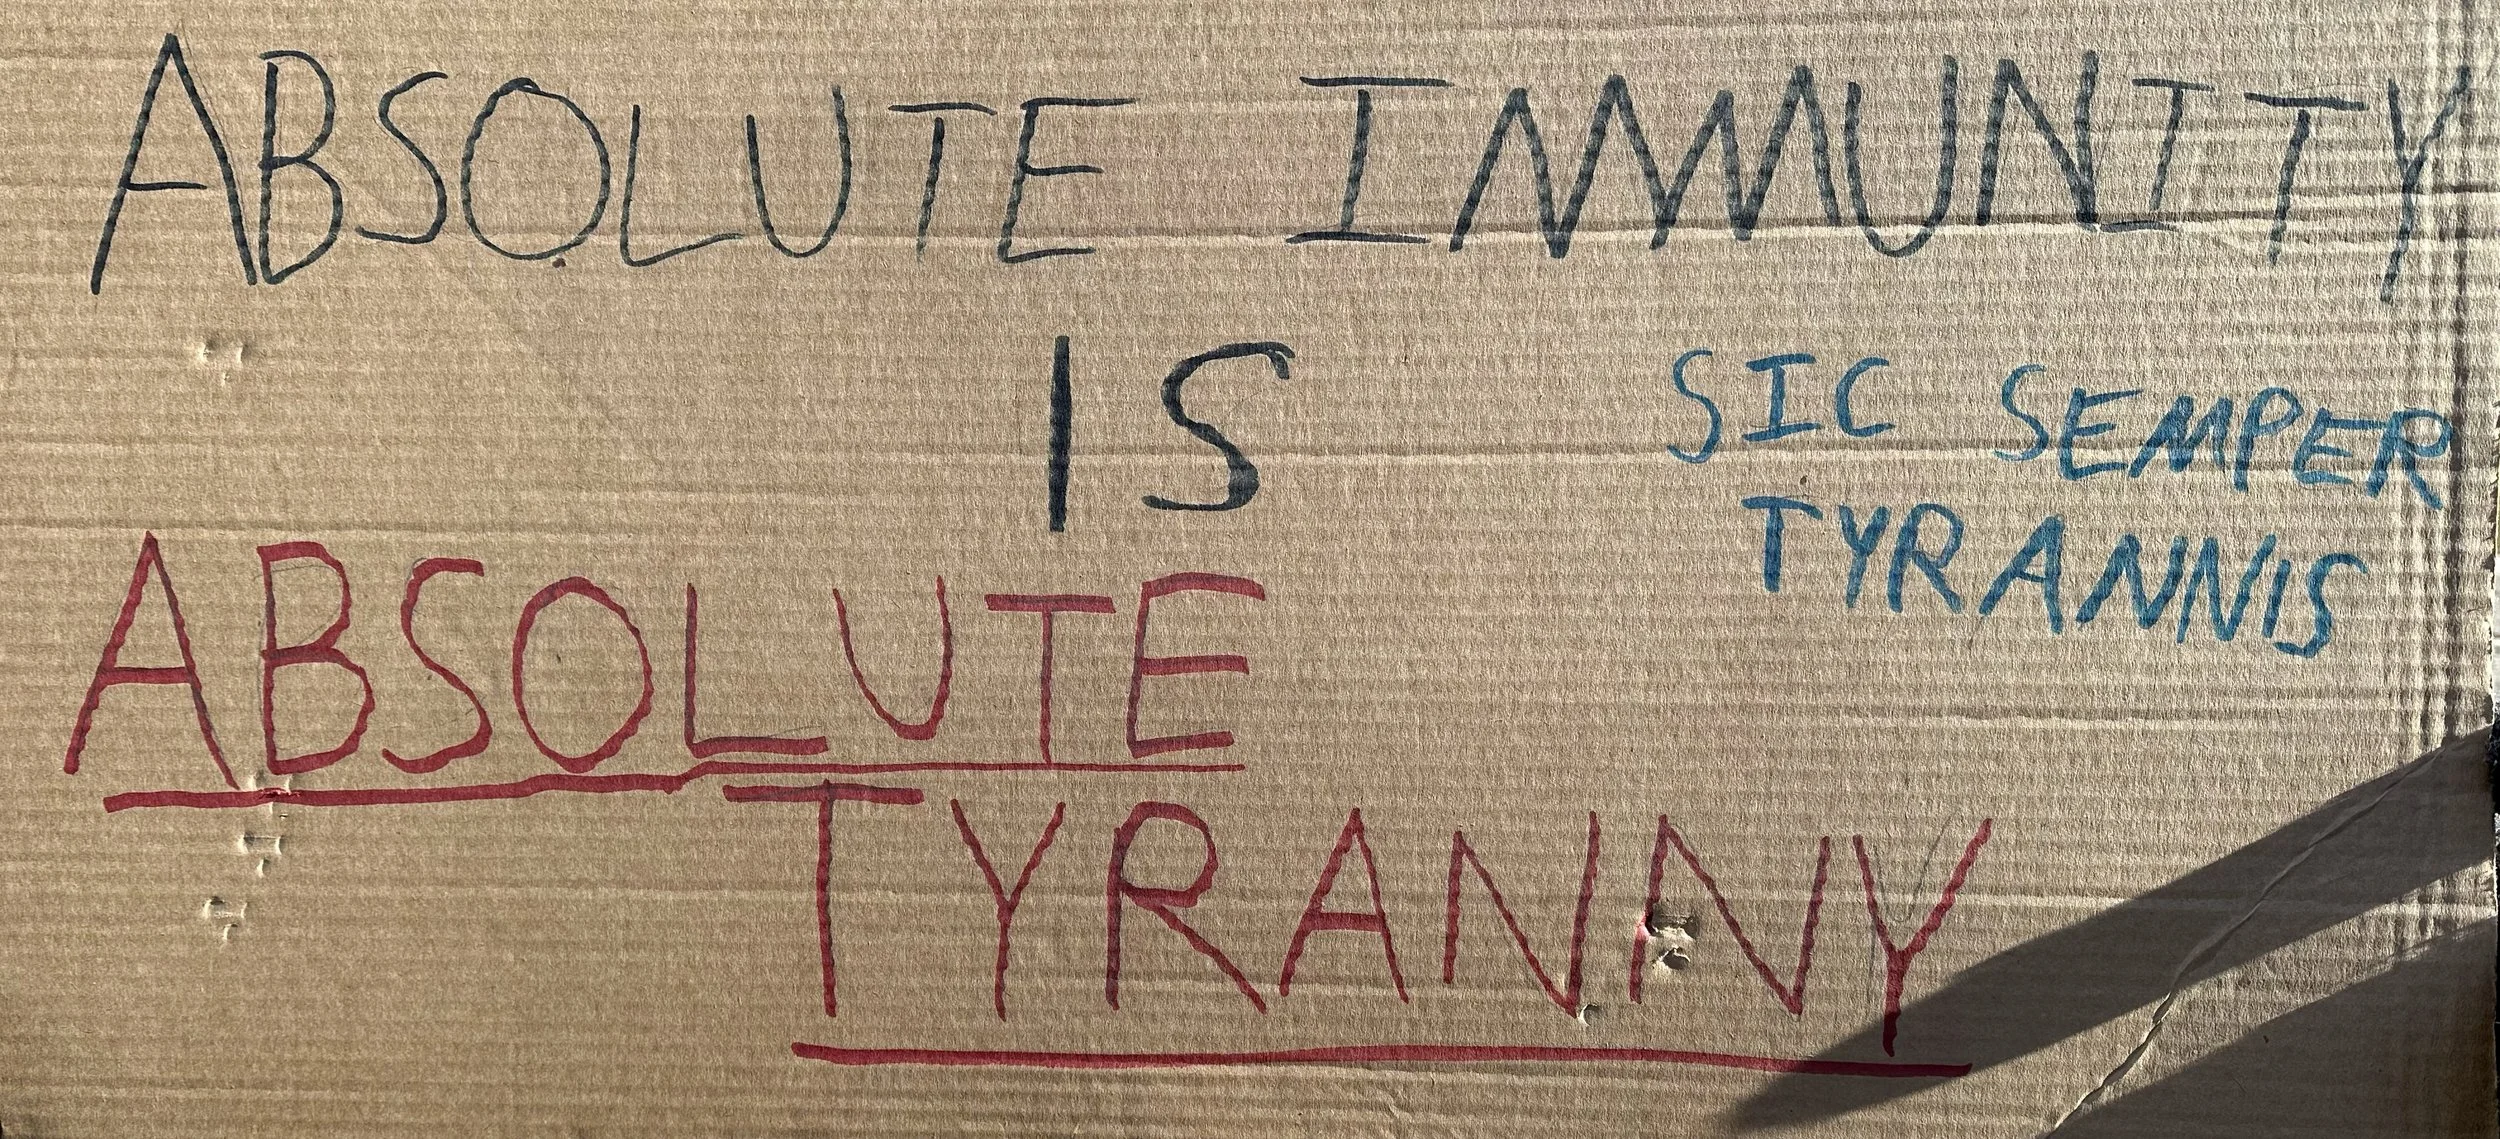 ABSOLUTE IMMUNITY
IS
SIC SEMPER
TYRANNIS
ABSOLUTE
TYRANNY